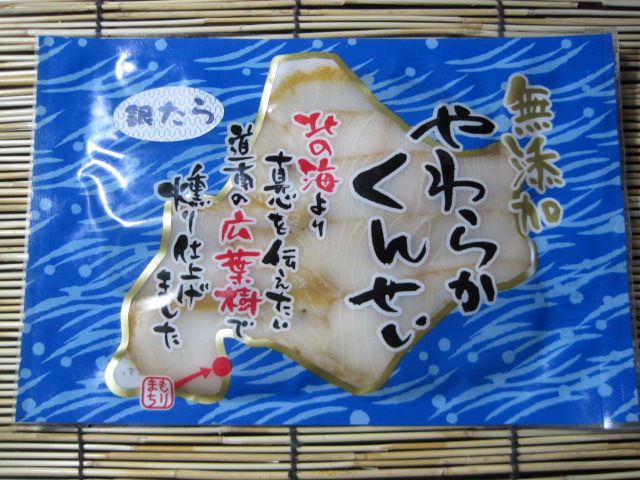 無添加
やわらか
くんせい
銀たら
北の海より
真心を伝えたい
道南の広葉樹で
燻り仕上げ
ました
もり
まち